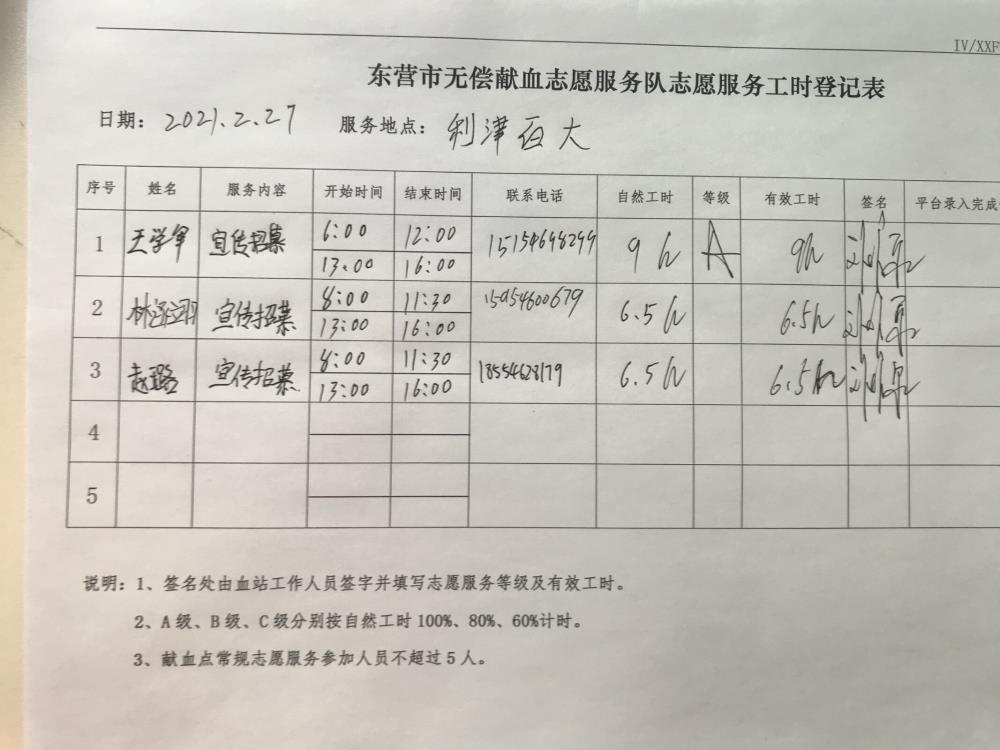 IV/XXF
东营市无偿献血志愿服务队志愿服务工时登记表
日期： 2021.2.27 服务地点： 利津百大
序号 姓名 服务内容 开始时间 结束时间 联系电话 自然工时 等级 有效工时 签名 平台录入完成
1 王学军 宣传招募 6:00 12:00 15154698299 9h A 9h
13:00 16:00
2 宣传招募 8:00 11:30 15954600679 6.5h 6.5h
13:00 16:00
3 赵璐 宣传招募 8:00 11:30 18554628179 6.5h 6.5h
13:00 16:00
4
5
说明：1、签名处由血站工作人员签字并填写志愿服务等级及有效工时。
2、A级、B级、C级分别按自然工时100%、80%、60%计时。
3、献血点常规志愿服务参加人员不超过5人。